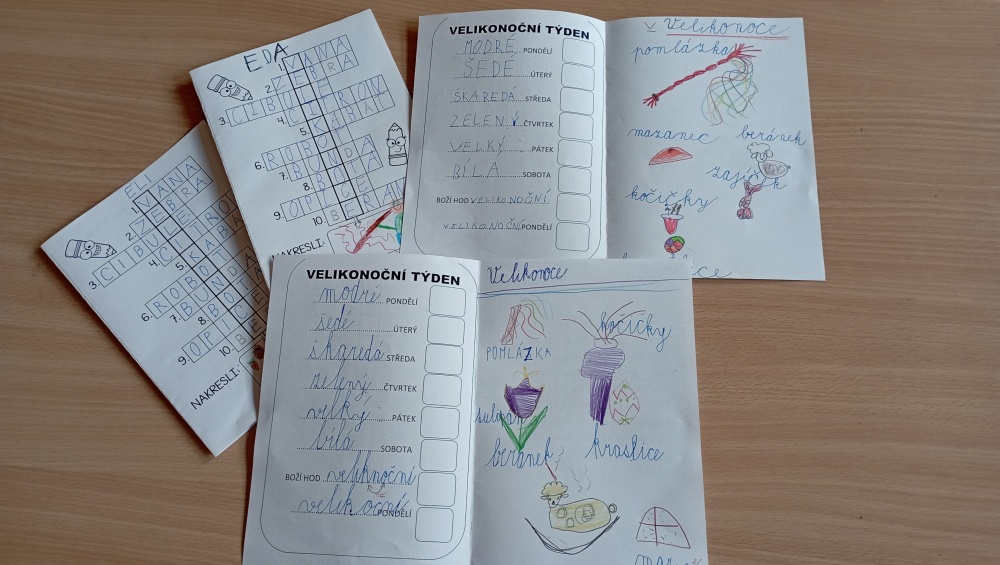 EDA
1. VÁNA
2. ZEBRA
3. CIBULE
4. CITRON
5. KABÁT
6. ROBOT
7. BUNDA
8. BOTA
9. OPICE
10. BERAN
NAKRESLI:
ELI
1. VANA
2. ZEBRA
3. CIBULE
4. CITRO
5. KABÁ
6. ROBOT
7. BUNDA
8. BO
9. OPICE
10. BE
NAKRESLI:
VELIKONOČNÍ TÝDEN
MODRÉ PONDĚLÍ
ŠEDÉ ÚTERÝ
ŠKAREDÁ STŘEDA
ZELENÝ ČTVRTEK
VELKÝ PÁTEK
BÍLÁ SOBOTA
BOŽÍ HOD VELIKONOČNÍ
VELIKONOČNÍ PONDĚLÍ
Velikonoce
pomlázka
mazanec beránek
zajíček
kočičky
VELIKONOČNÍ TÝDEN
modré PONDĚLÍ
šedé ÚTERÝ
škaredá STŘEDA
zelený ČTVRTEK
velký PÁTEK
bílá SOBOTA
BOŽÍ HOD veliknoční
velikoční PONDĚLÍ
Velikonoce
kočicky
POMLÁZKA
beránek kraslice